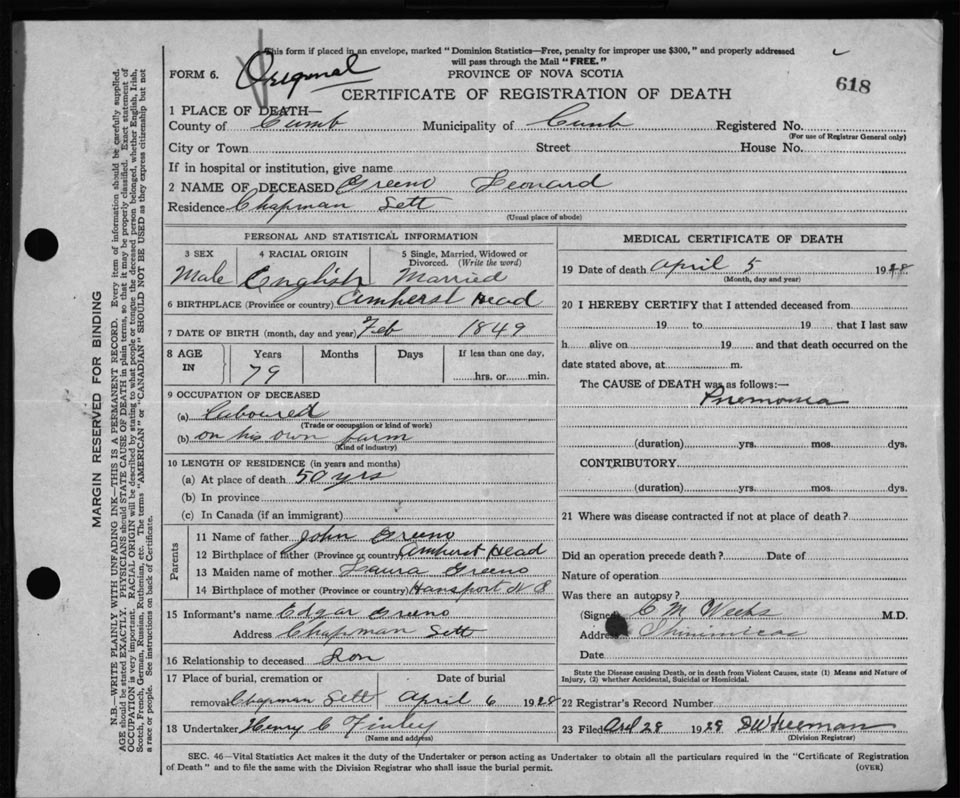 This form if placed in an envelope, marked "Dominion Statistics—Free, penalty for improper use $300," and properly addressed
will pass through the Mail "FREE."
FORM 6.
Original
PROVINCE OF NOVA SCOTIA
618
CERTIFICATE OF REGISTRATION OF DEATH
1 PLACE OF DEATH—
County of Cumb Municipality of Cumb Registered No.
(For use of Registrar General only)
City or Town Street House No.
If in hospital or institution, give name
2 NAME OF DECEASED Greeno Leonard
Residence Chapman Sett
(Usual place of abode)
PERSONAL AND STATISTICAL INFORMATION
3 SEX 4 RACIAL ORIGIN 5 Single, Married, Widowed or
Divorced. (Write the word)
Male English Married
6 BIRTHPLACE (Province or country) Amherst Head
7 DATE OF BIRTH (month, day and year) Feb 1849
8 AGE
IN
Years Months Days If less than one day,
79 hrs. or min.
9 OCCUPATION OF DECEASED
(a) Laboured
(Trade or occupation or kind of work)
(b) on his own farm
(Kind of industry)
10 LENGTH OF RESIDENCE (in years and months)
(a) At place of death 50 yrs
(b) In province
(c) In Canada (if an immigrant)
Parents
11 Name of father John Greeno
12 Birthplace of father (Province or country) Amherst Head
13 Maiden name of mother Laura Greeno
14 Birthplace of mother (Province or country) Hansport N S
15 Informant's name Edgar Greeno
Address Chapman Sett
16 Relationship to deceased Son
17 Place of burial, cremation or Date of burial
removal Chapman Sett April 6 1928
18 Undertaker Henry C Finley
(Name and address)
MEDICAL CERTIFICATE OF DEATH
19 Date of death April 5 1928
(Month, day and year)
20 I HEREBY CERTIFY that I attended deceased from
19 to 19 that I last saw
h alive on 19 and that death occurred on the
date stated above, at m.
The CAUSE of DEATH was as follows:—
Pnemonia
(duration) yrs. mos. dys.
CONTRIBUTORY
(duration) yrs. mos. dys.
21 Where was disease contracted if not at place of death?
Did an operation precede death? Date of
Nature of operation
Was there an autopsy?
(Signed C M Weeks M.D.
Address Shinimicas
Date
State the Disease causing Death, or in death from Violent Causes, state (1) Means and Nature of
Injury, (2) whether Accidental, Suicidal or Homicidal.
22 Registrar's Record Number
23 Filed 28 1928 Freeman
(Division Registrar)
SEC. 46—Vital Statistics Act makes it the duty of the Undertaker or person acting as Undertaker to obtain all the particulars required in the "Certificate of Registration
of Death" and to file the same with the Division Registrar who shall issue the burial permit.
(OVER)
MARGIN RESERVED FOR BINDING
N.B.—WRITE PLAINLY WITH UNFADING INK—THIS IS A PERMANENT RECORD. Every item of information should be carefully supplied.
AGE should be stated EXACTLY. PHYSICIANS should STATE CAUSE OF DEATH in plain terms, so that it may be properly classified. Exact statement of
OCCUPATION is very important. RACIAL ORIGIN will be described by stating to what people or tongue the deceased person belonged, whether English, Irish,
Scotch, French, German, Russian, Ruthenian, etc. The terms "AMERICAN" or "CANADIAN" SHOULD NOT BE USED as they express citizenship but not
a race or people. See instructions on back of Certificate.